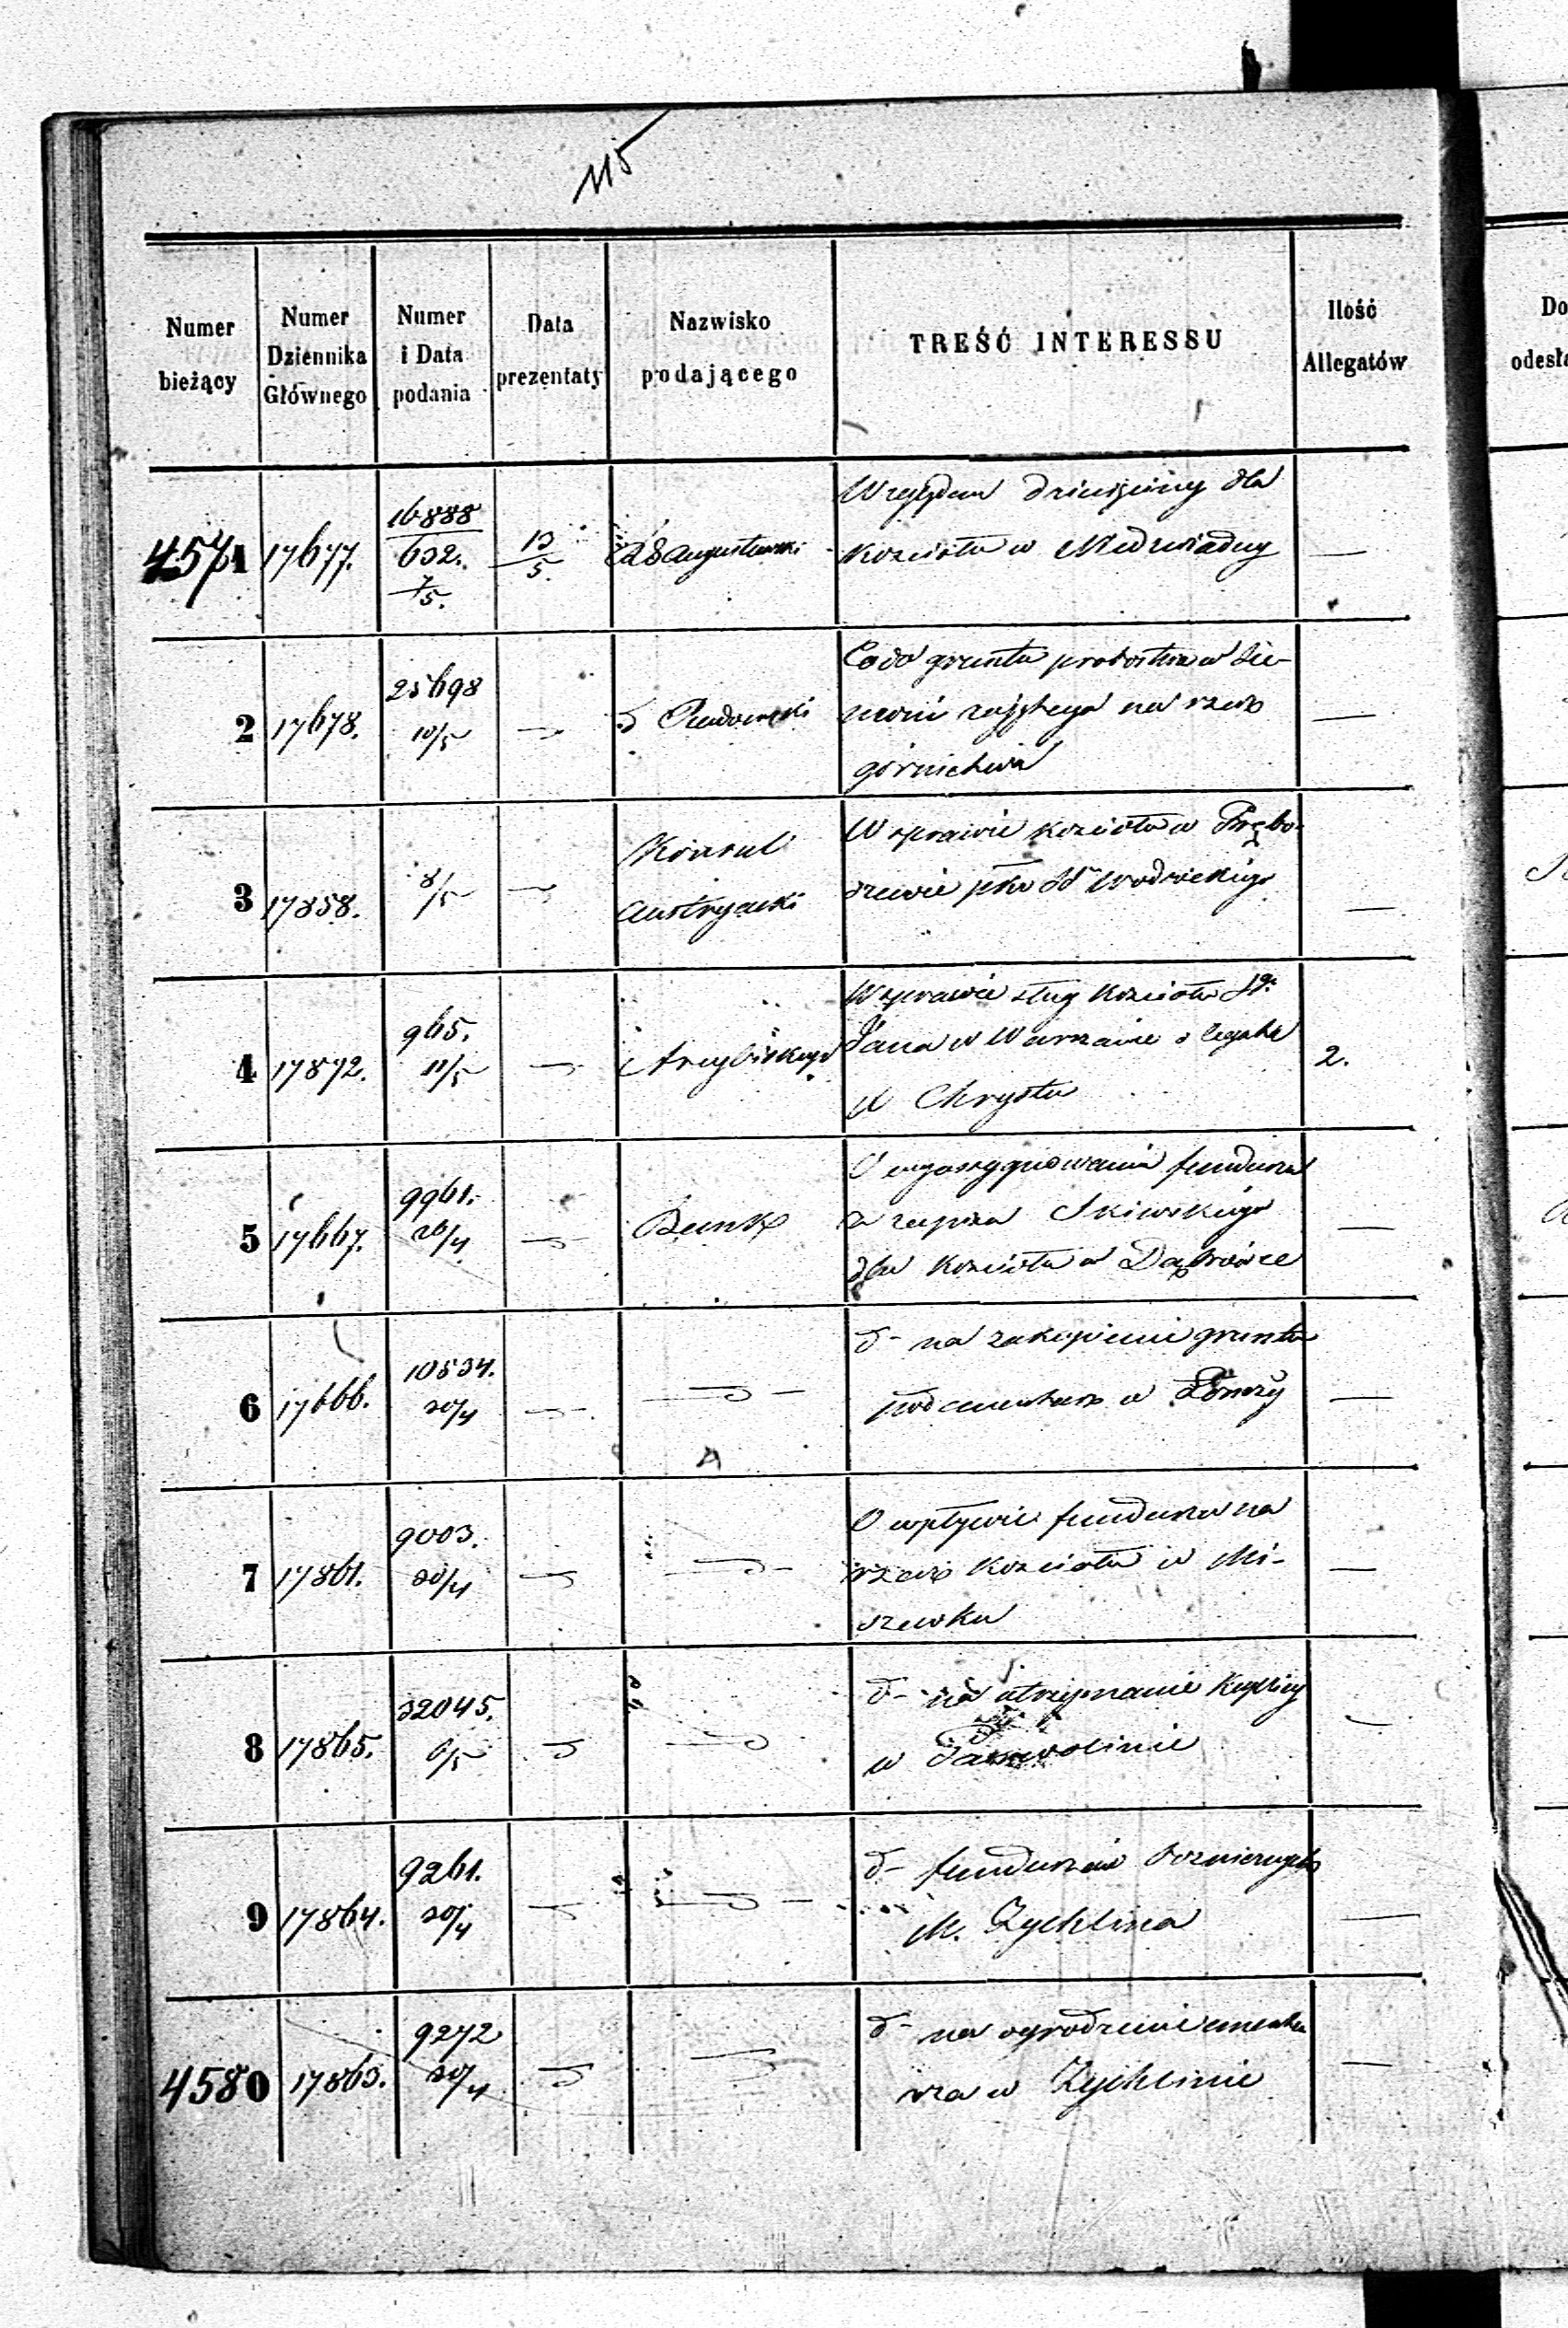 115
Numer bieżący
Numer Dziennika Głównego
Numer i Data podania
Data prezentaty
Nazwisko podającego
TREŚĆ INTERESSU
Ilość Allegatów
Do
odesła
4571 17677. 16888 632. 7/5. 13/5. Augustowski Względem dziesięciny dla
Kościoła w Niedzwiadny —
2 17678. 25698 10/5 Co do gruntu probostwa w Sie-
wni zajętego na rzecz —
górnictwa
3 17858. 8/5 Konsul
Austryacki
W sprawie kościoła w Prębo-
szewie pko Wodzickiego —
4 17872. 965. 11/5 Arcybiskup W sprawie sług Kościoła Sgo
Jana w Warszawie o legata 2.
Chrystu
5 17667. 9961. 20/4 Bank O wyassygnowaniu funduszu
z zapisu Skiwskiego —
dla Kościoła w Dąbrówce
6 17666. 10534. 20/4 d- na zakupienie gruntu
pod cmentarz w Łomży —
7 17861. 9003. 20/4 O wpływie funduszu na
rzecz Kościoła w Mi- —
szewku
8 17865. 32045. 6/5 d- na utrzymanie Kaplicy
w
9 17864. 9261. 20/4 d- funduszów
M. Zychlina —
4580 17863. 9272 20/4 d- na ogrodzenie cmenta
rza w Zychlinie —